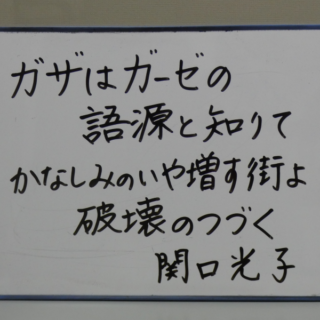 ガザはガーゼの
語源と知りて
かなしみのいや増す街よ
破壊のつづく
関口光子